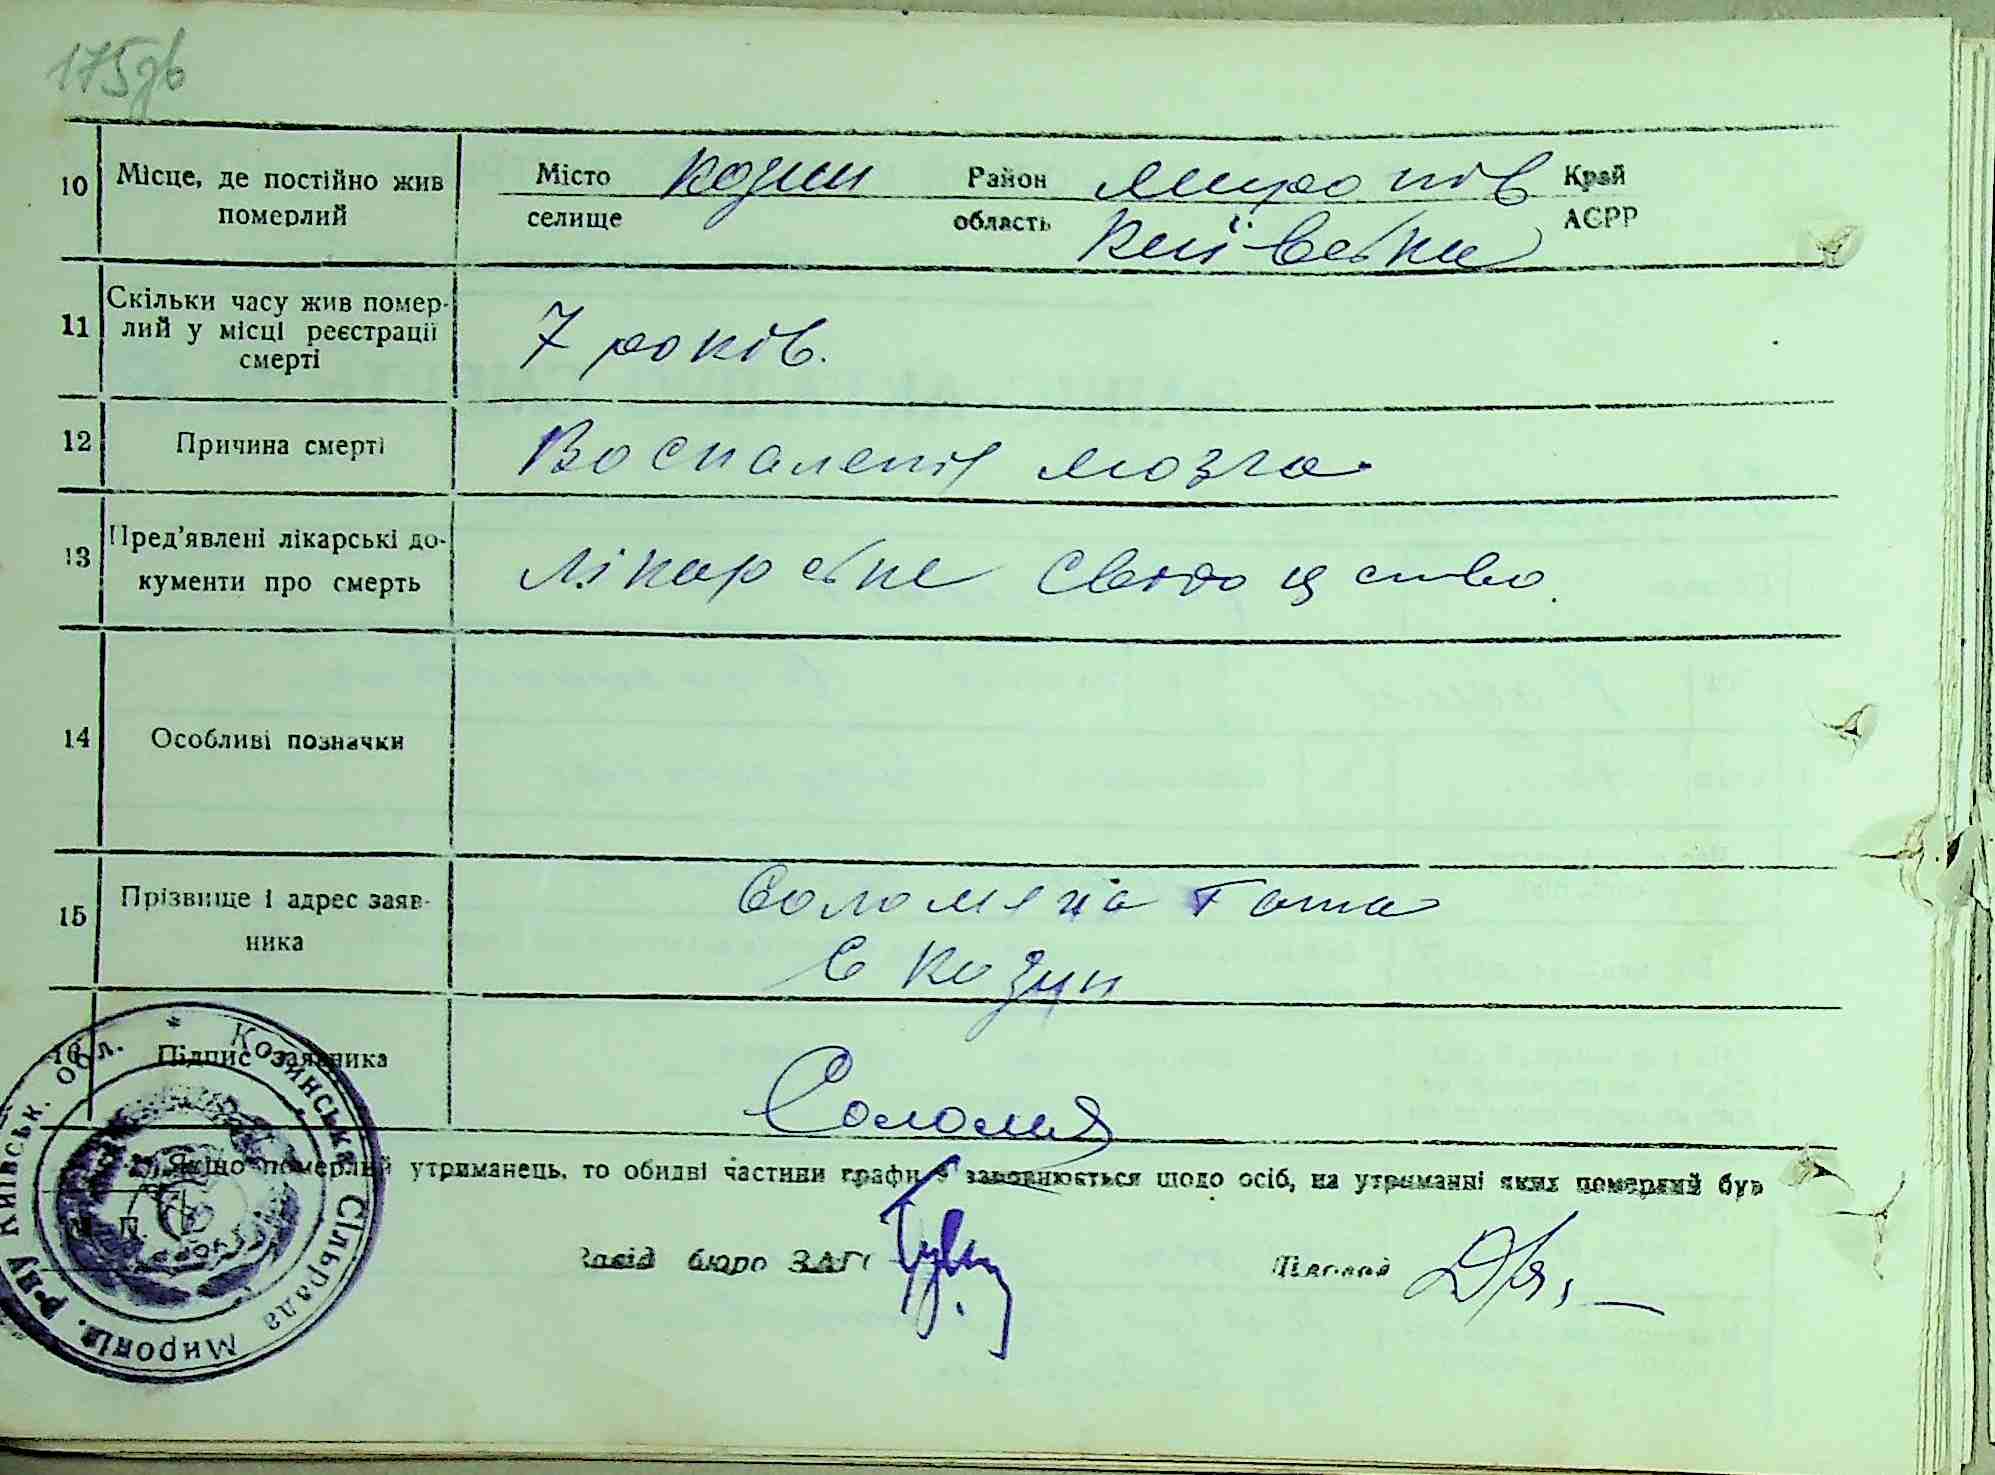 175зв
10 Місце, де постійно жив померлий
Місто Козин Район Миропів Край
селище область Київська АСРР
11 Скільки часу жив помер-
лий у місці реєстрації
смерті
7 років.
12 Причина смерті Воспаленія мозга
13 Пред'явлені лікарські до-
кументи про смерть
лікарське свідоцтво.
14 Особливі позначки
15 Прізвище і адрес заяв-
ника
Соломяна
с Козин
16 Підпис заявника Соломя
Якщо померлий утриманець, то обидві частини графи 9 заповнюється щодо осіб, на утриманні яких померлий був
М. П.
Завід бюро ЗАГС Діловод
* Козинська Сільрада Миронів. р-ну Київськ. обл.